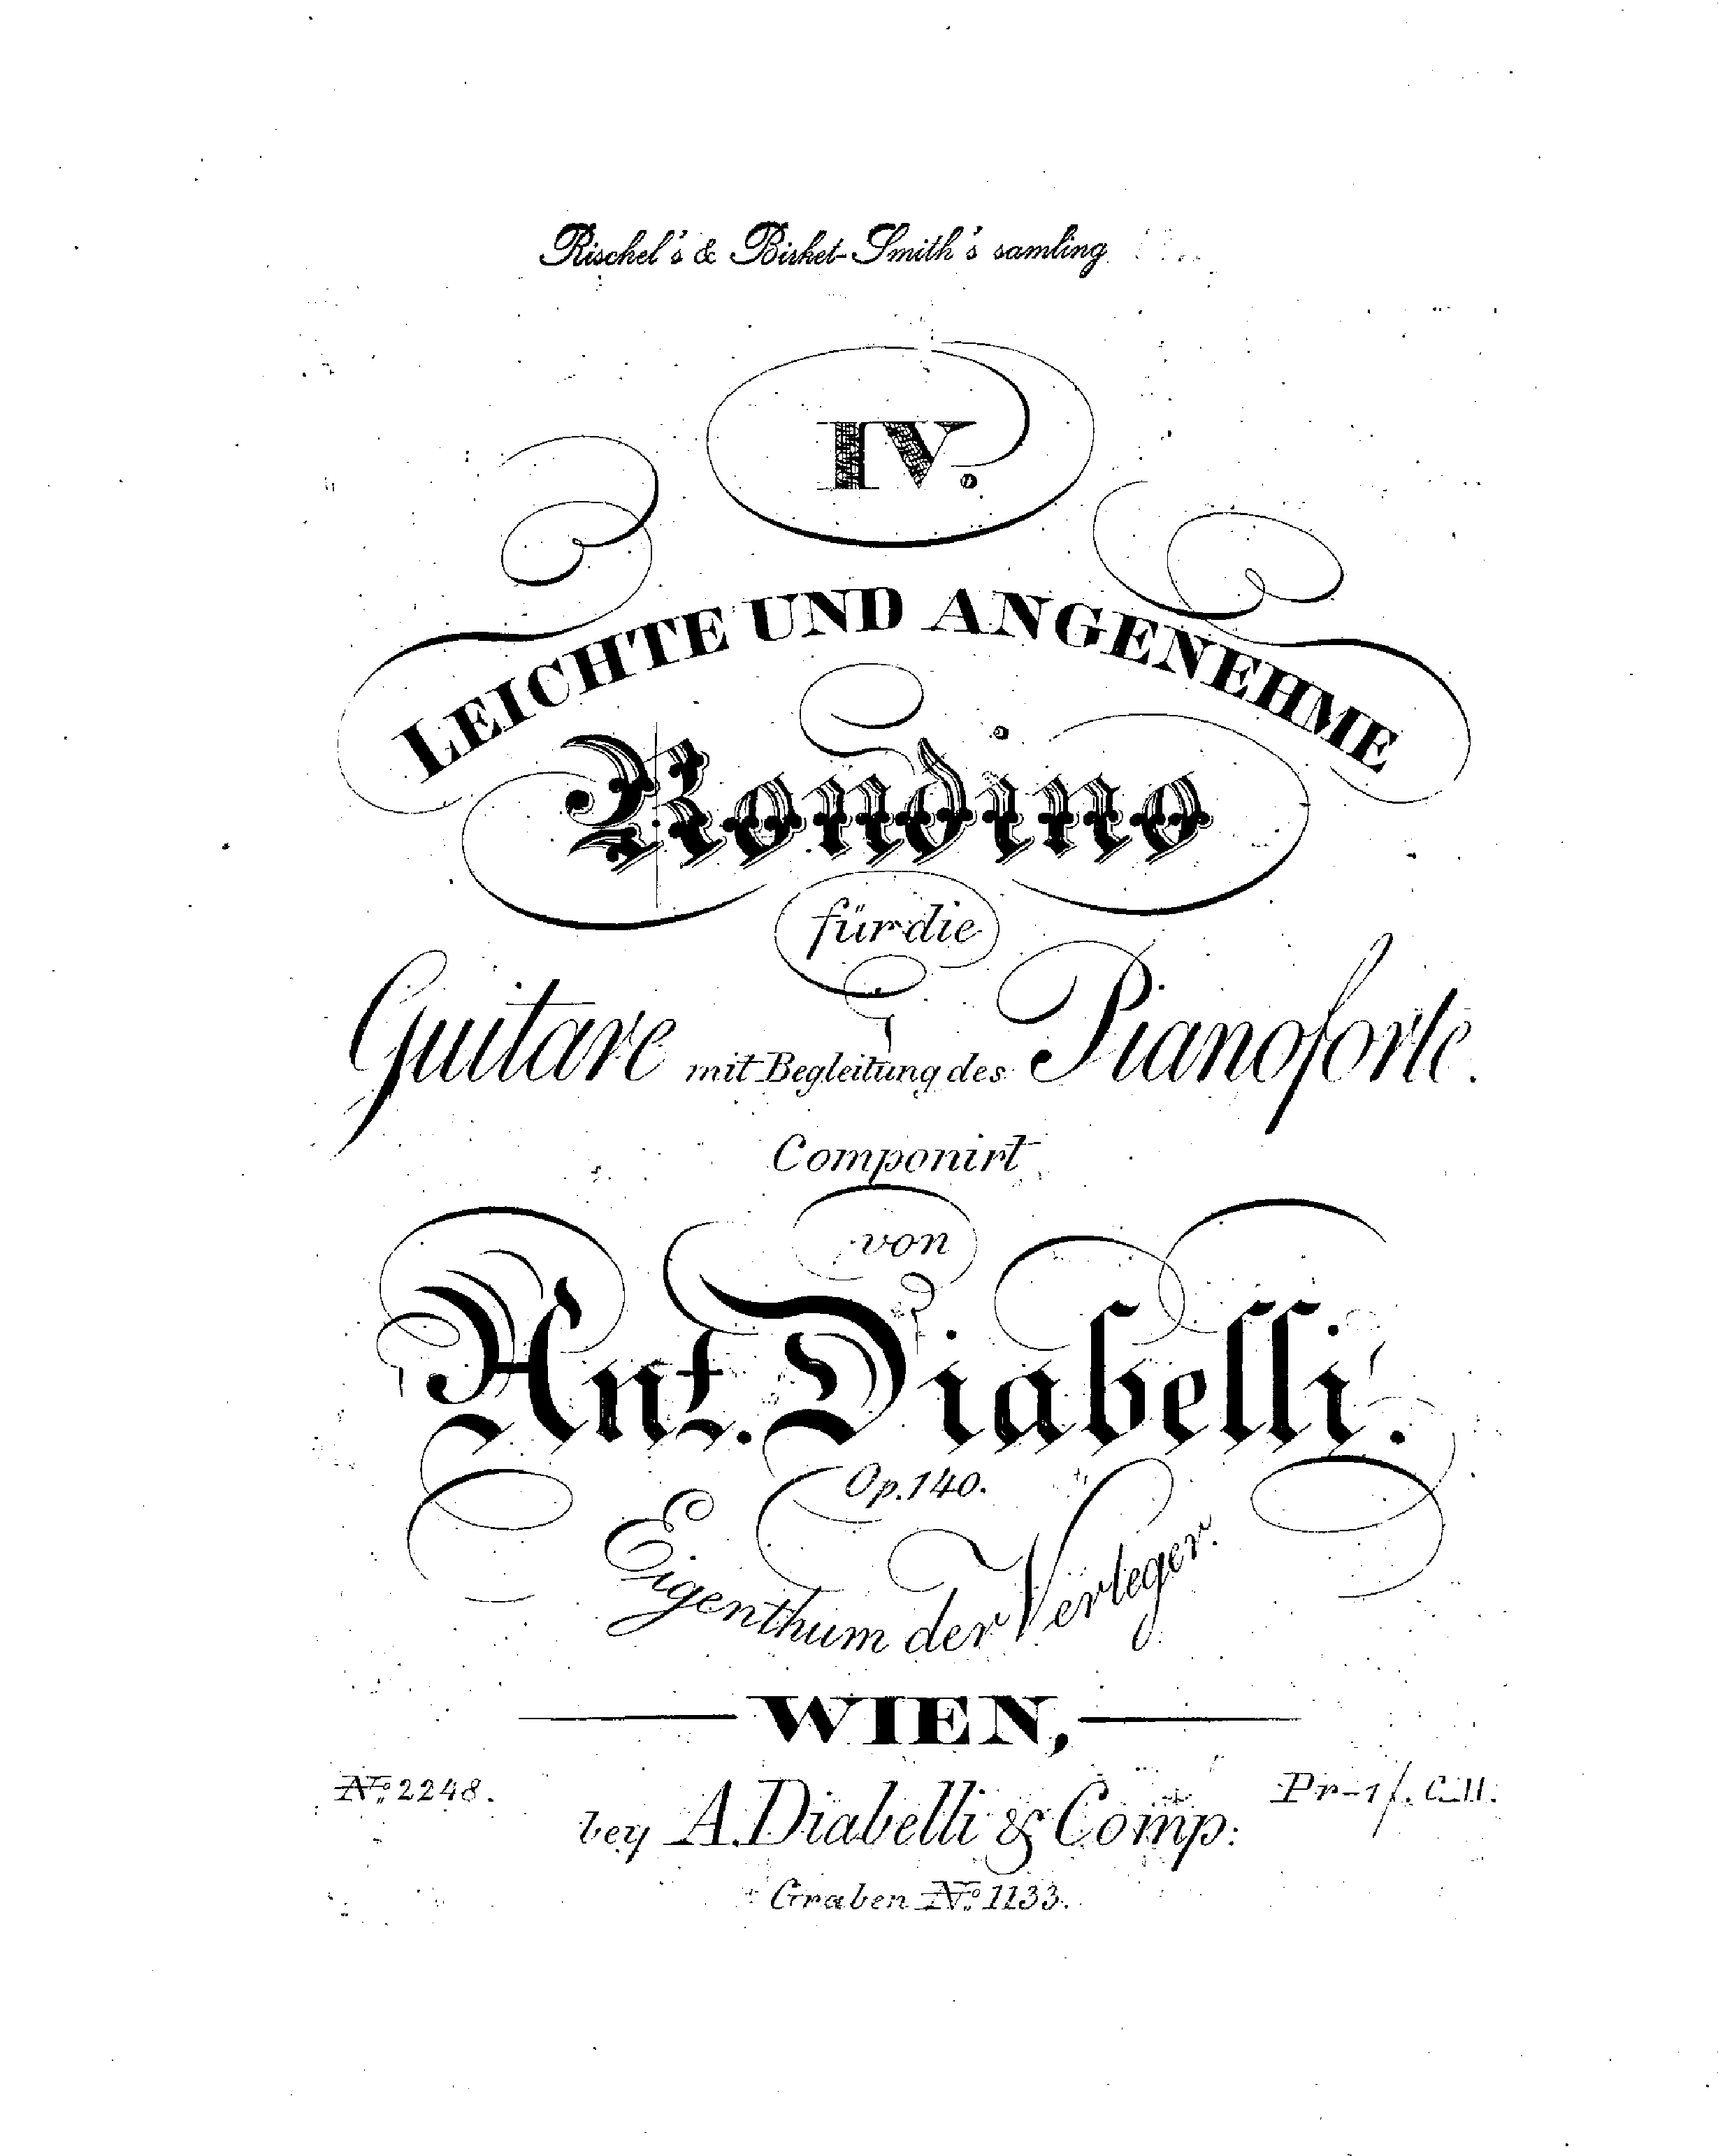 Rischel's & Birket-Smith's samling
IV.
LEICHTE UND ANGENEHME
Rondino
für die
Guitare mit Begleitung des Pianoforte.
Componirt
von
Ant. Diabelli.
Op. 140.
Eigenthum der Verleger.
WIEN,
No. 2248.
Pr-1f. C.M.
bey A. Diabelli & Comp:
Graben No. 1133.